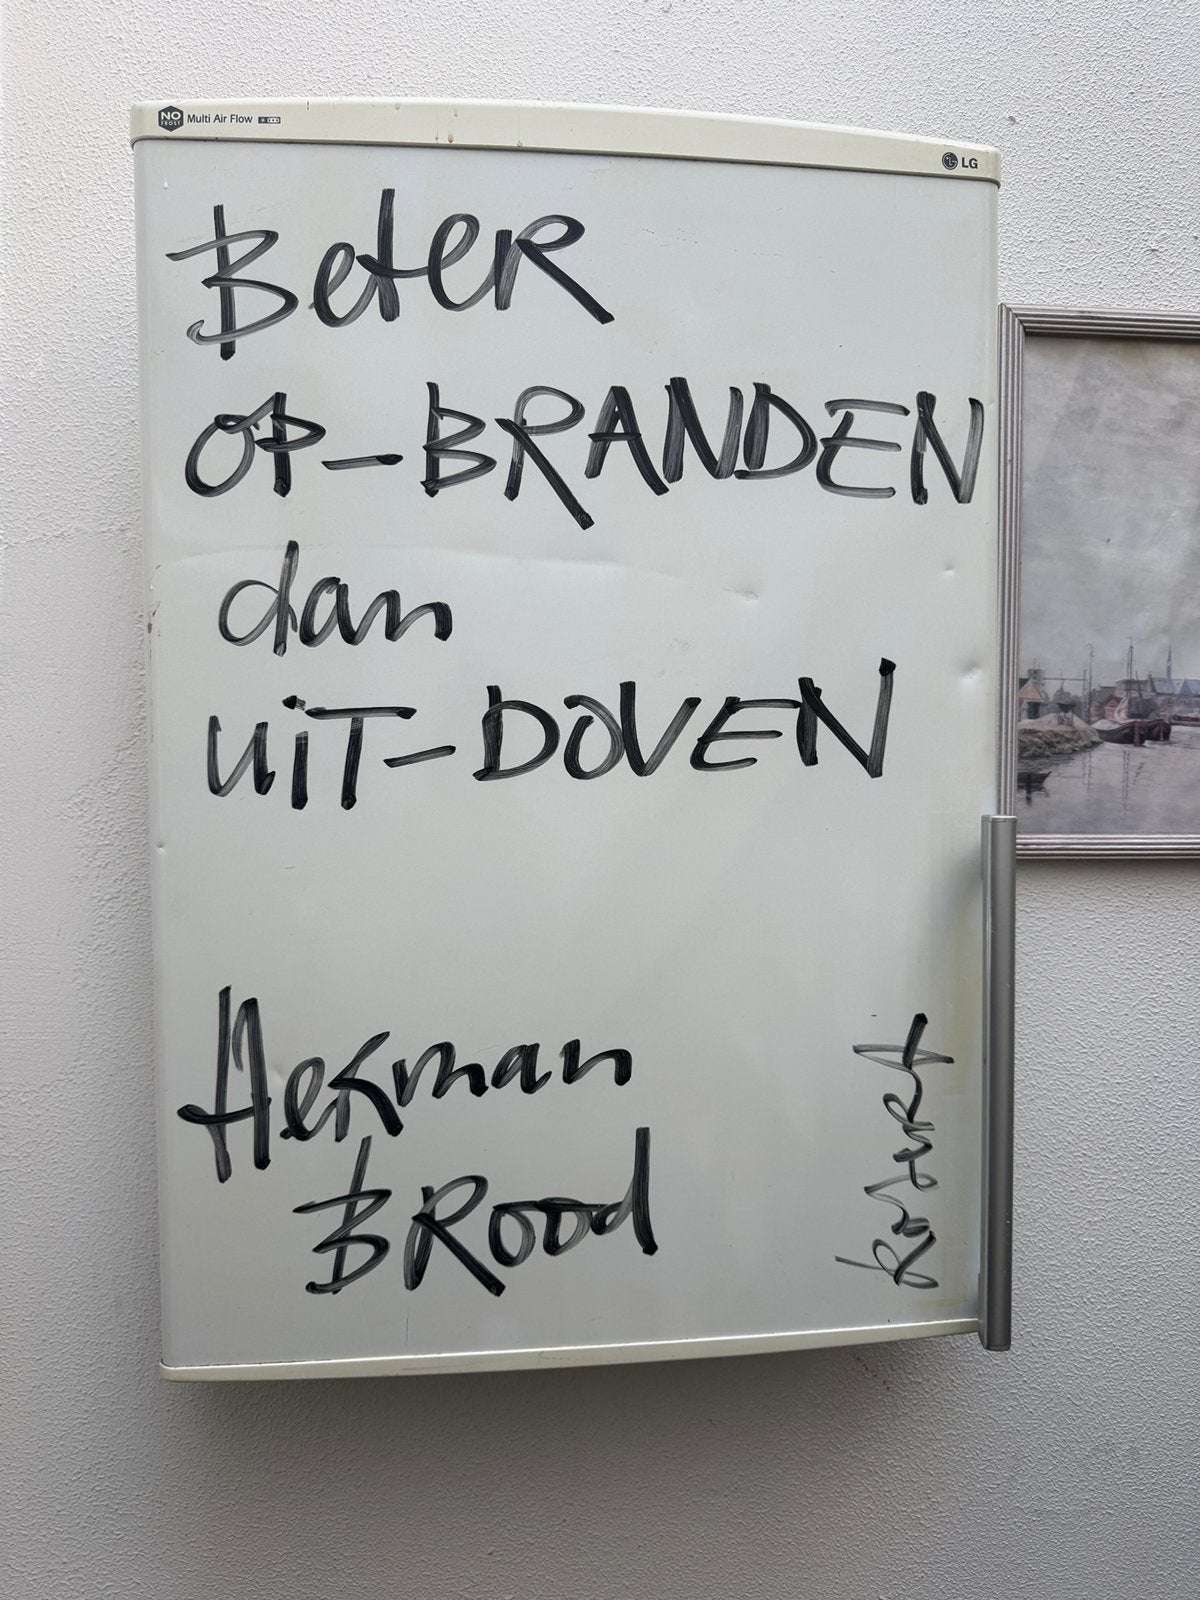 NO FROST Multi Air Flow
LG
Beter
OP-BRANDEN
dan
UiT-DOVEN
Herman
BRood